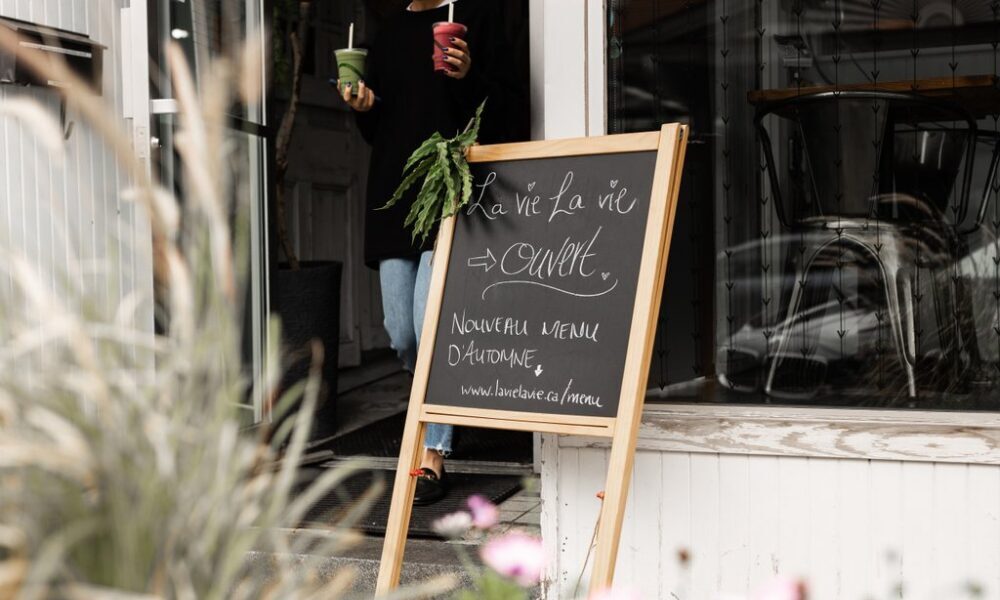 La vie La vie
⇨ Ouvert
NOUVEAU MENU
D'AUTOMNE
www.lavielavie.ca/menu